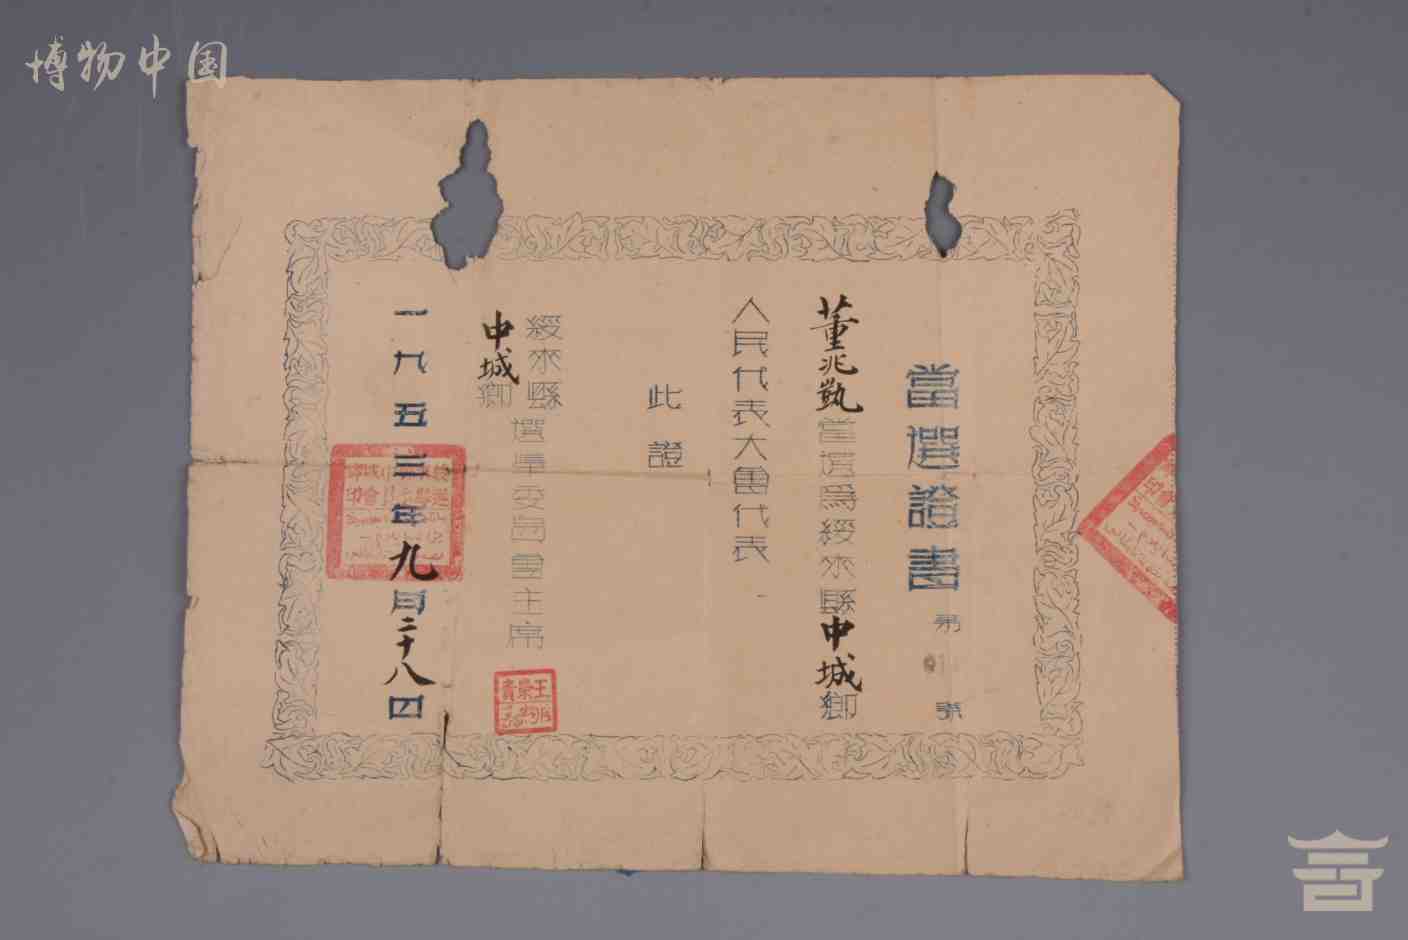 博物中国
當選證書
第
號
董兆凱當選爲綏來縣中城鄉
人民代表大會代表
此證
綏來縣
中城鄉
選舉委員會主席
王榮貴
一九五三年九月二十八日